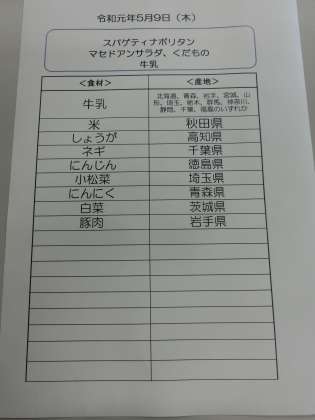 令和元年5月9日（木）
スパゲティナポリタン
マセドアンサラダ、くだもの
牛乳
＜食材＞ ＜産地＞
牛乳 北海道、青森、岩手、宮城、山
形、埼玉、栃木、群馬、神奈川、
静岡、千葉、福島のいずれか
米 秋田県
しょうが 高知県
ネギ 千葉県
にんじん 徳島県
小松菜 埼玉県
にんにく 青森県
白菜 茨城県
豚肉 岩手県